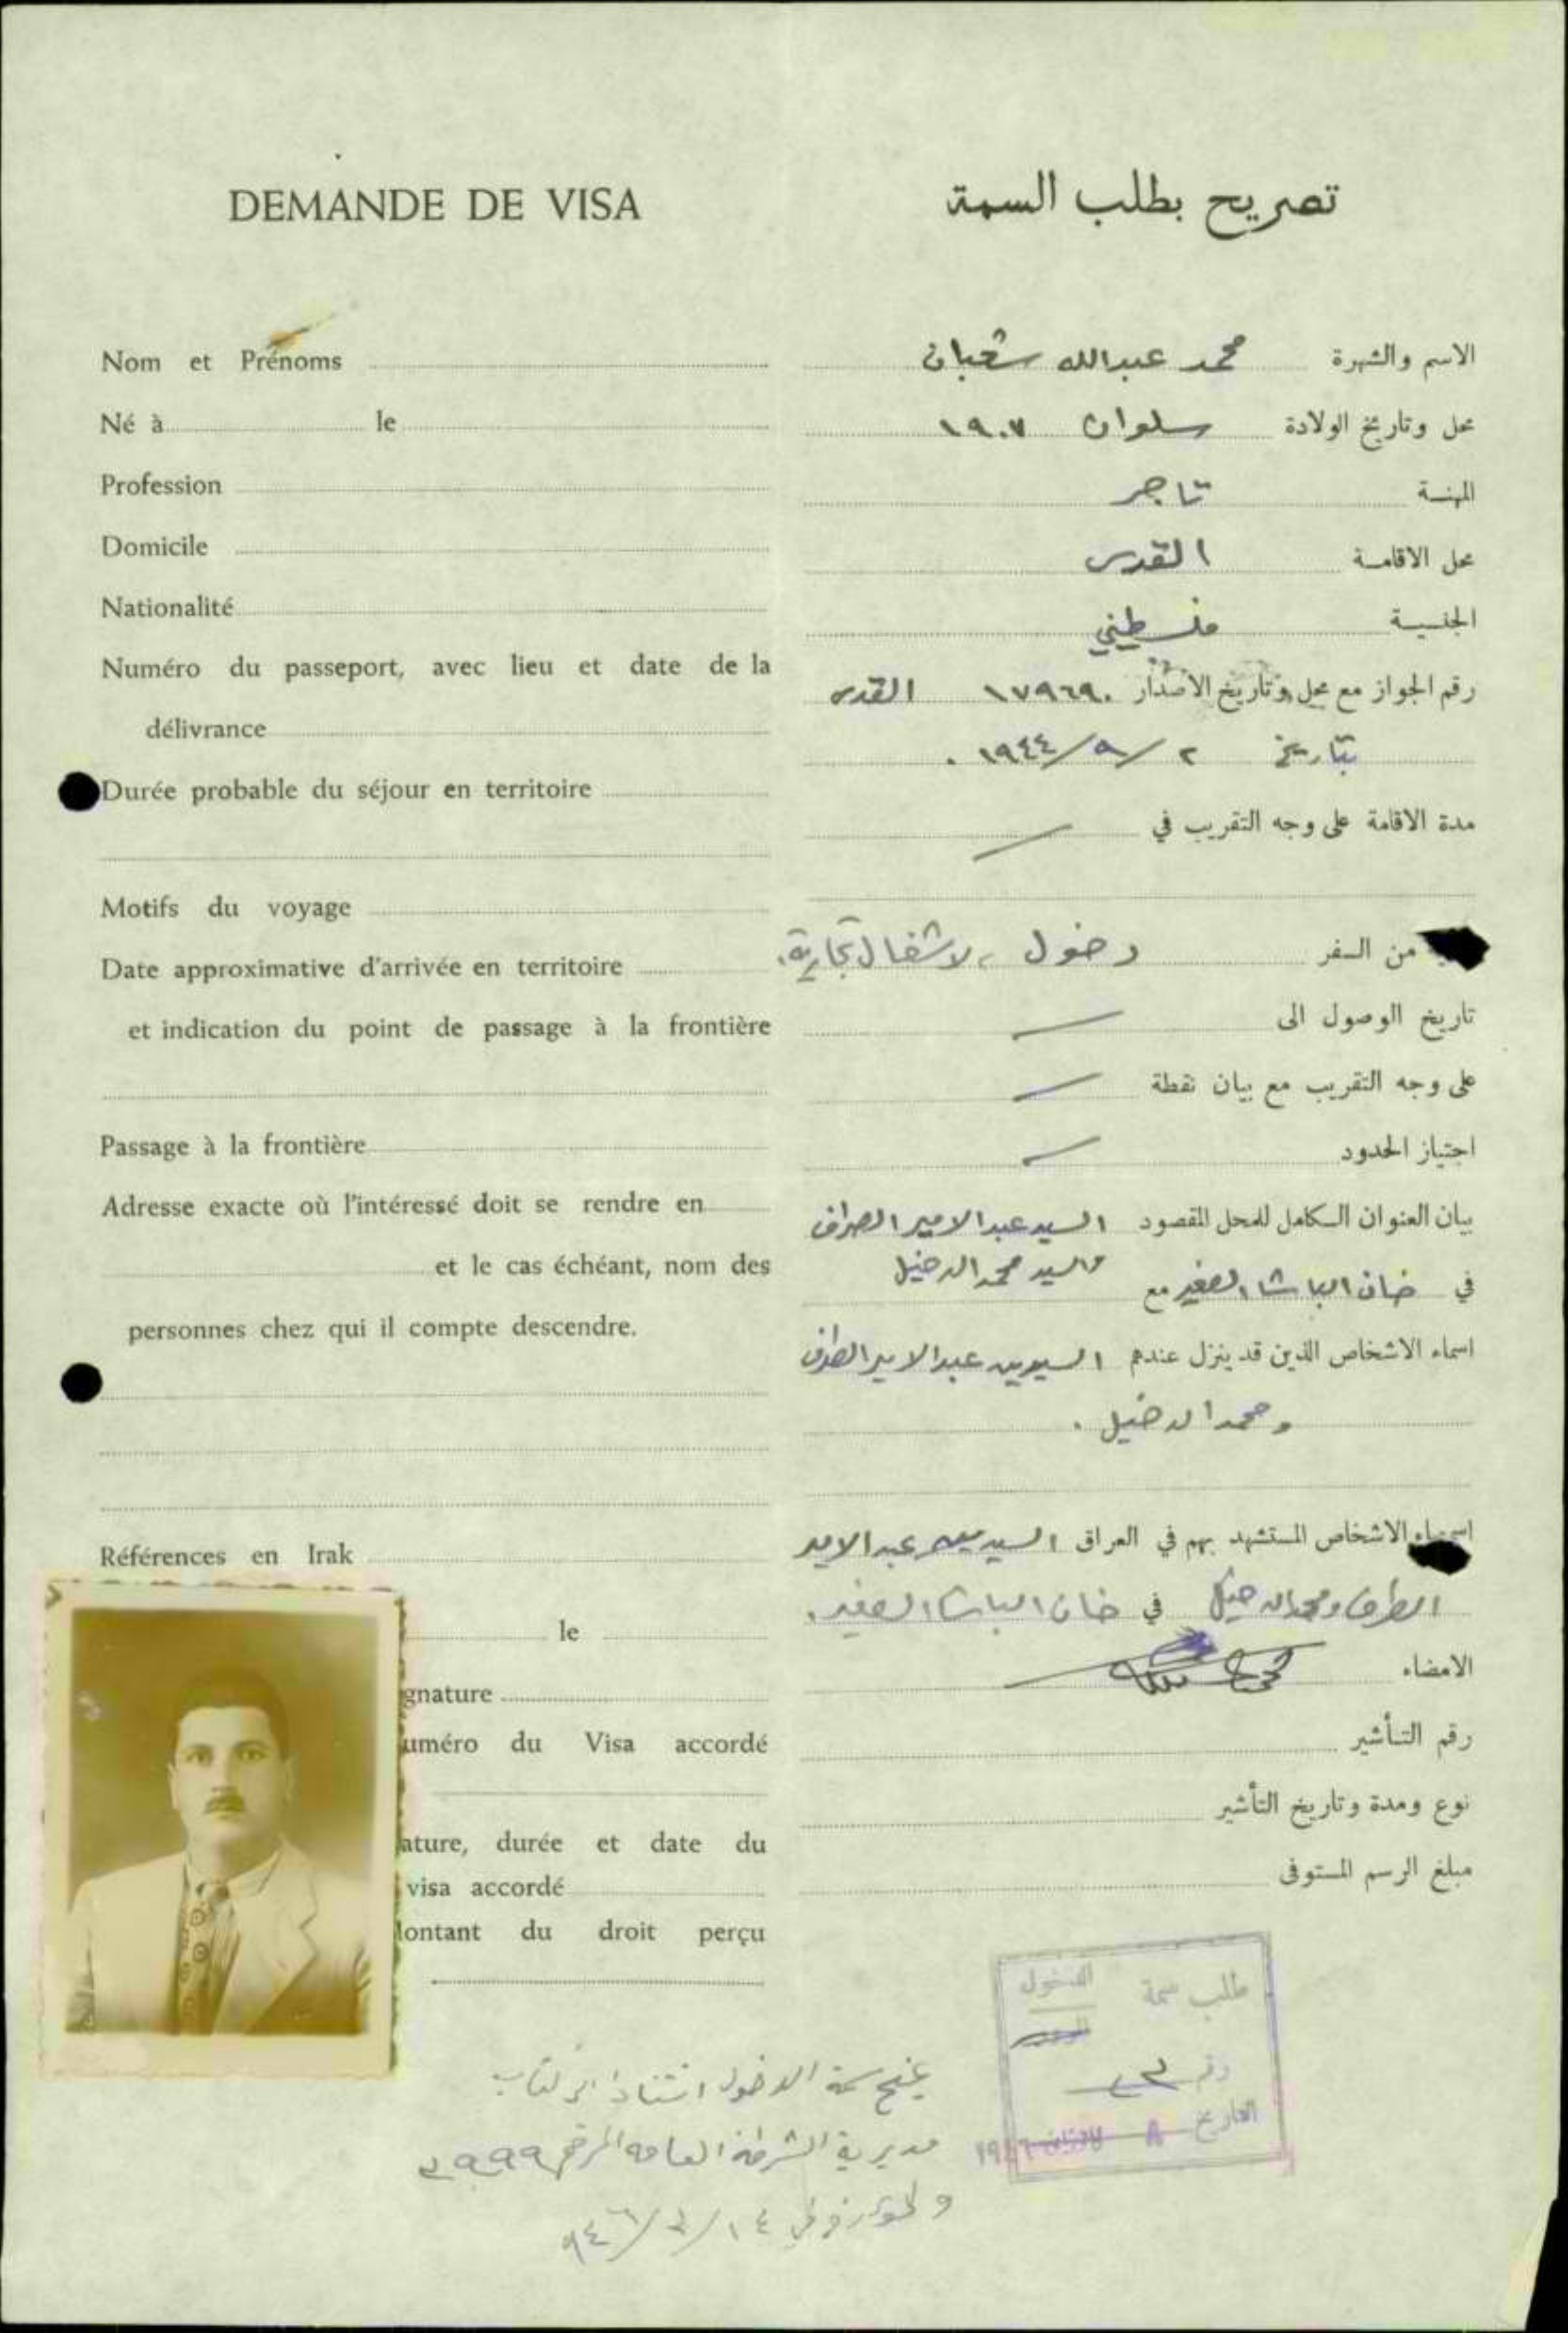 DEMANDE DE VISA
Nom et Prénoms
Né à le
Profession
Domicile
Nationalité
Numéro du passeport, avec lieu et date de la
délivrance
Durée probable du séjour en territoire
Motifs du voyage
Date approximative d'arrivée en territoire
et indication du point de passage à la frontière
Passage à la frontière
Adresse exacte où l'intéressé doit se rendre en
et le cas échéant, nom des
personnes chez qui il compte descendre.
Références en Irak
le
gnature
uméro du Visa accordé
ature, durée et date du
visa accordé
ontant du droit perçu
تصريح بطلب السمة
الاسم والشهرة محمد عبدالله شعبان
محل وتاريخ الولادة سلوان ١٩٠٧
المهنة تاجر
محل الاقامة القدس
الجنسية فلسطيني
رقم الجواز مع محل وتاريخ الاصدار ١٧٩٦٩٠ القدس
بتاريخ ٢/٩/١٩٤٤ .
مدة الاقامة على وجه التقريب في
من السفر دخول ، لاشغال تجارية .
تاريخ الوصول الى
على وجه التقريب مع بيان نقطة
اجتياز الحدود
بيان العنوان الكامل للمحل المقصود السيد عبدالامير الصراف
والسيد محمد الدخيل
في خان الباشا الصغير مع
اسماء الاشخاص الذين قد ينزل عندهم السيدين عبدالامير الصراف
ومحمد الدخيل .
اسماء الاشخاص المستشهد بهم في العراق السيد عبدالامير
الصراف ومحمد الدخيل في خان الباشا الصغير .
الامضاء
رقم التأشير
نوع ومدة وتاريخ التأشير
مبلغ الرسم المستوفى
طلب سمة الدخول
رقم
التاريخ ٨ ١٩٤٦
يمنح سمة الدخول استنادا الى كتاب
مديرية الشرطة العامة المرقم ٢٩٩٩